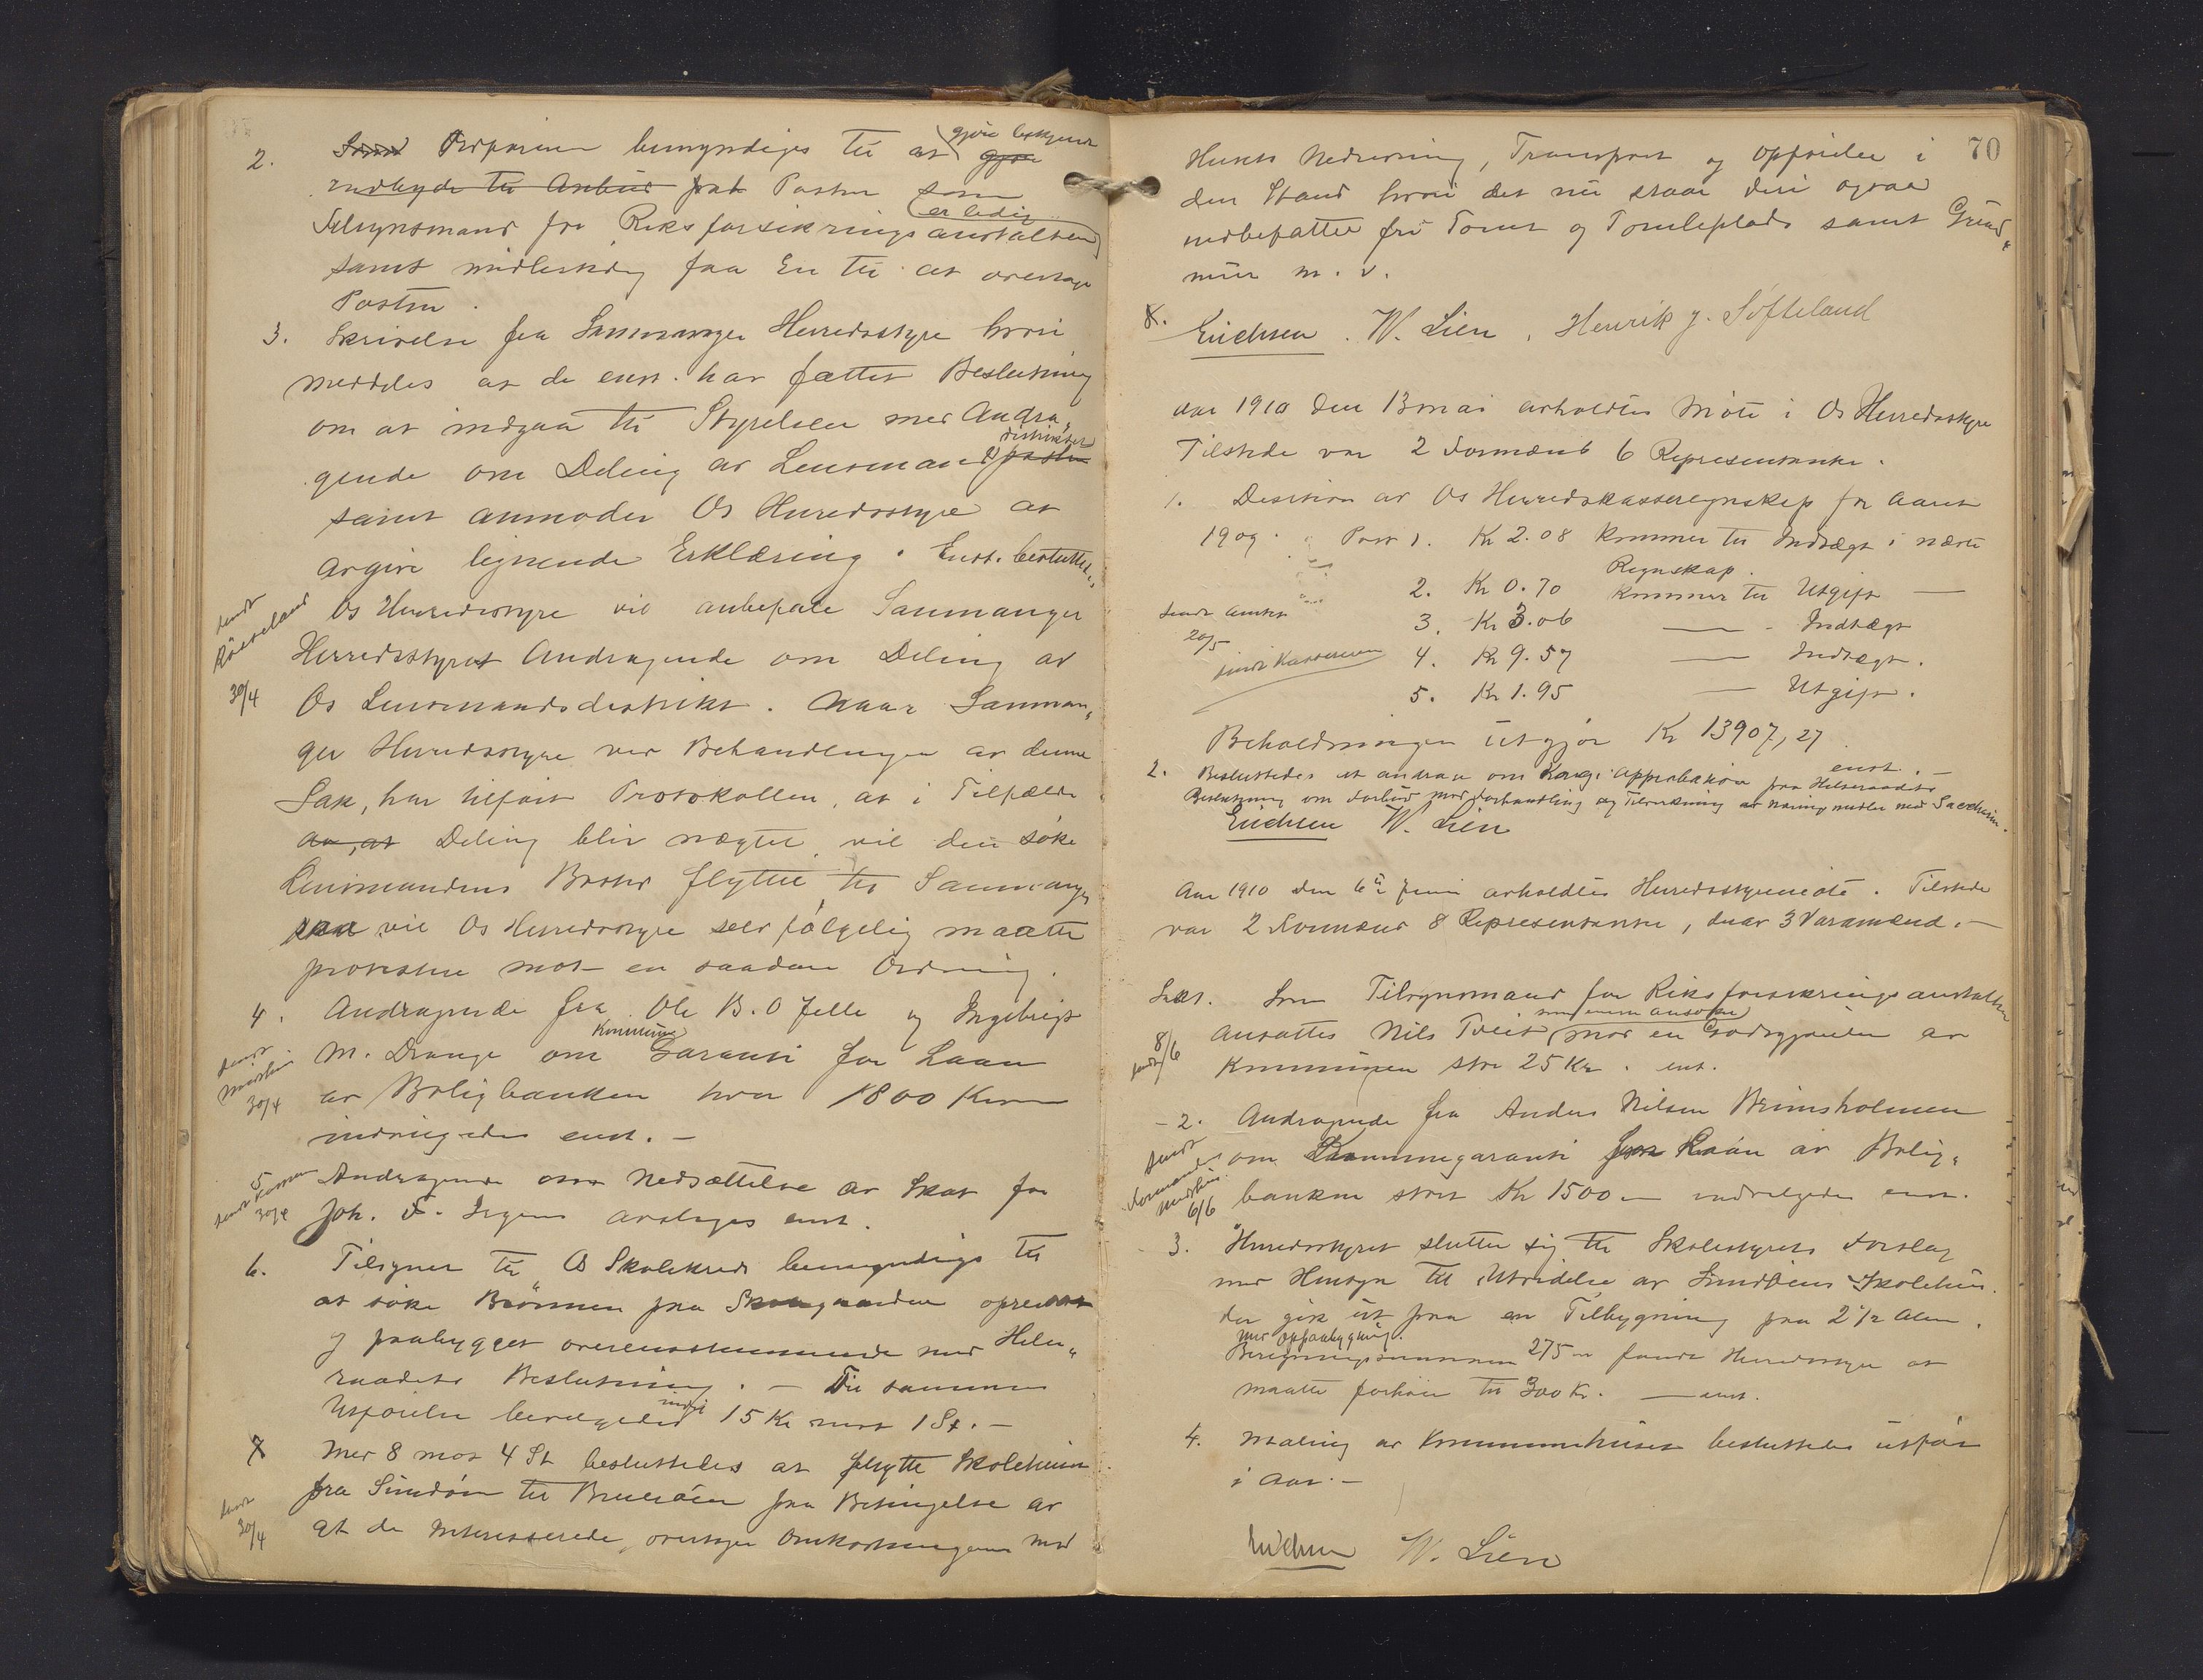 2. Ordføreren bemyndiges til at gjøre bekjendt
indbyde til Anbud paa Posten som
er ledig
Tilsynsmand for Riksforsikringsanstalten
samt midlertidig faa En til at overtage
Posten.
3. Skrivelse fra Sammanger Herredsstyre hvori
meddeles at de enst. har fattet Beslutning
om at indgaa til Styrelsen med Andra„
distriktet
gende om Deling av Lensmandsposten
samt anmoder Os Herredsstyre at
avgive lignende Erklæring. Enst. besluttedes
sendt
Røseland
30/4
Os Herredsstyre vil anbefale Sammanger
Herredsstyret Andragende om Deling av
Os Lensmandsdistrikt. Naar Samman„
ger Herredsstyre ved Behandlingen av denne
Sak, har tilført Protokollen, at i Tilfælde
av, at Deling blir nægtet, vil den søke
Lensmandens Bosted flyttet til Sammanger
saa vil Os Herredsstyre selvfølgelig maatte
protestere mot en saadan Ordning.
4. Andragende fra Ole B. O felle og Ingebrigt
Kommune
M. Drange om Garanti for Laan
sendt
30/4
av Boligbanken hver 1800 Kroner
indvilgedes enst. –
5. Andragende om Nedsættelse av Skat for
sendt Kassereren 30/4
Joh. F. avslages enst.
6. Tilsynet til Os Skolekreds bemyndiges til
at søke Brønnen paa Skougaarden oprenset
og paabygget overensstemmende med Helse„
raadets Beslutning. – Til samme
indtil
Utførelse bevilgedes 15 Kr mot 1 St. –
7 Med 8 mot 4 St besluttedes at flytte Skolehuset
fra Sundøen til Bruerøen paa Betingelse av
sendt
30/4
at de Interesserede overtager Omkostningerne med
70
Husets Nedrivning, Transport og Opførelse i
den Stand hvori det nu staar deri ogsaa
indbefattet fri Tomt og Tomteplads samt Grund„
mur m. v.
8.
Erichsen. W. Lien, Henrik J. Søfteland
Aar 1910 den 13 mai avholdtes Møte i Os Herredsstyre
Tilstede var 2 Formænd 6 Representanter.
1. Desision av Os Herredskasseregnskap for Aaret
1909. Post 1. Kr 2.08 kommer til Indtægt i næste
Regnskap.
2. Kr 0.70 kommer til Utgift —
sendt Amtet
20/5
3. Kr 3.06 — Indtægt
sendt Kassereren
4. Kr 9.57 — Indtægt.
5. Kr 1.95 — Utgift.
Beholdningen utgjør Kr 13907,27
enst. –
2. Besluttedes at andrage om Kongl. Approbation paa Helseraadets
Beslutning om Forbud mod Forhandling og Tilvirkning av Næringsmidler med Sacchrin.
Erichsen W. Lien
Aar 1910 den 6te Juni avholdtes Herredsstyremøte. Tilstede
var 2 Formænd 8 Representanter, derav 3 Varamænd. –
Sak 1. Som Tilsynsmand for Riksforsikringsanstalten
som eneste ansøker
sendt 8/6
ansattes Nils Tveit mod en Godtgjørelse av
Kommunen stor 25 Kr. enst.
– 2. Andragende fra Anders Nilsen Veimsholmen
sendt
Formanden
6/6
om Kommunegaranti for Laan av Bolig„
banken stort Kr 1500 – indvilgedes enst.
3. Herredsstyret slutter sig til Skolestyrets Forslag
med Hensyn til Utvidelse av Sundøens Skolehus.
der gik ut paa en Tilbygning paa 2 1/2 Alen.
med opfanbygning.
Beregningssummen 275 – fandt Herredsstyre at
maatte forhøie til 300 Kr. — enst.
4. Maling av Kommunehuset besluttedes utført
i Aar. –
Erichsen W. Lien